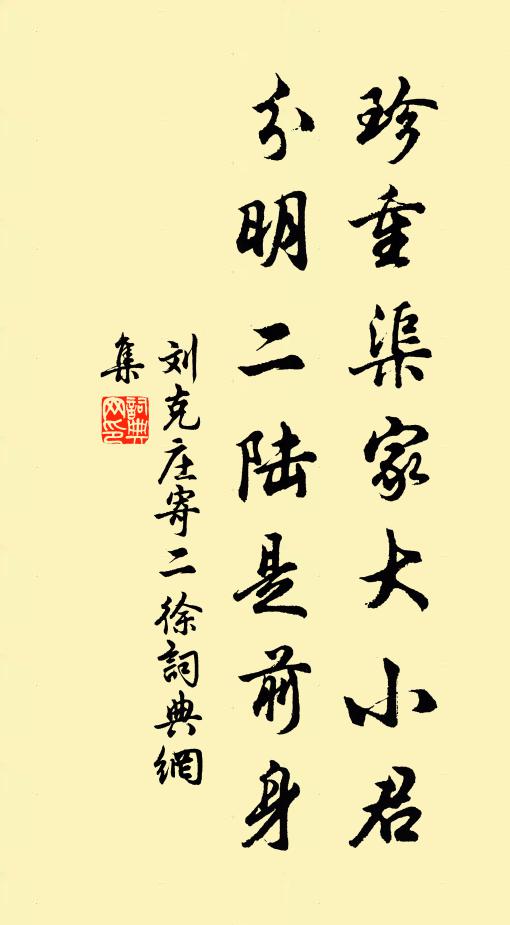 珍重渠家大小君
分明二陆是前身
刘克庄寄二徐詞典網
集
詞典網印